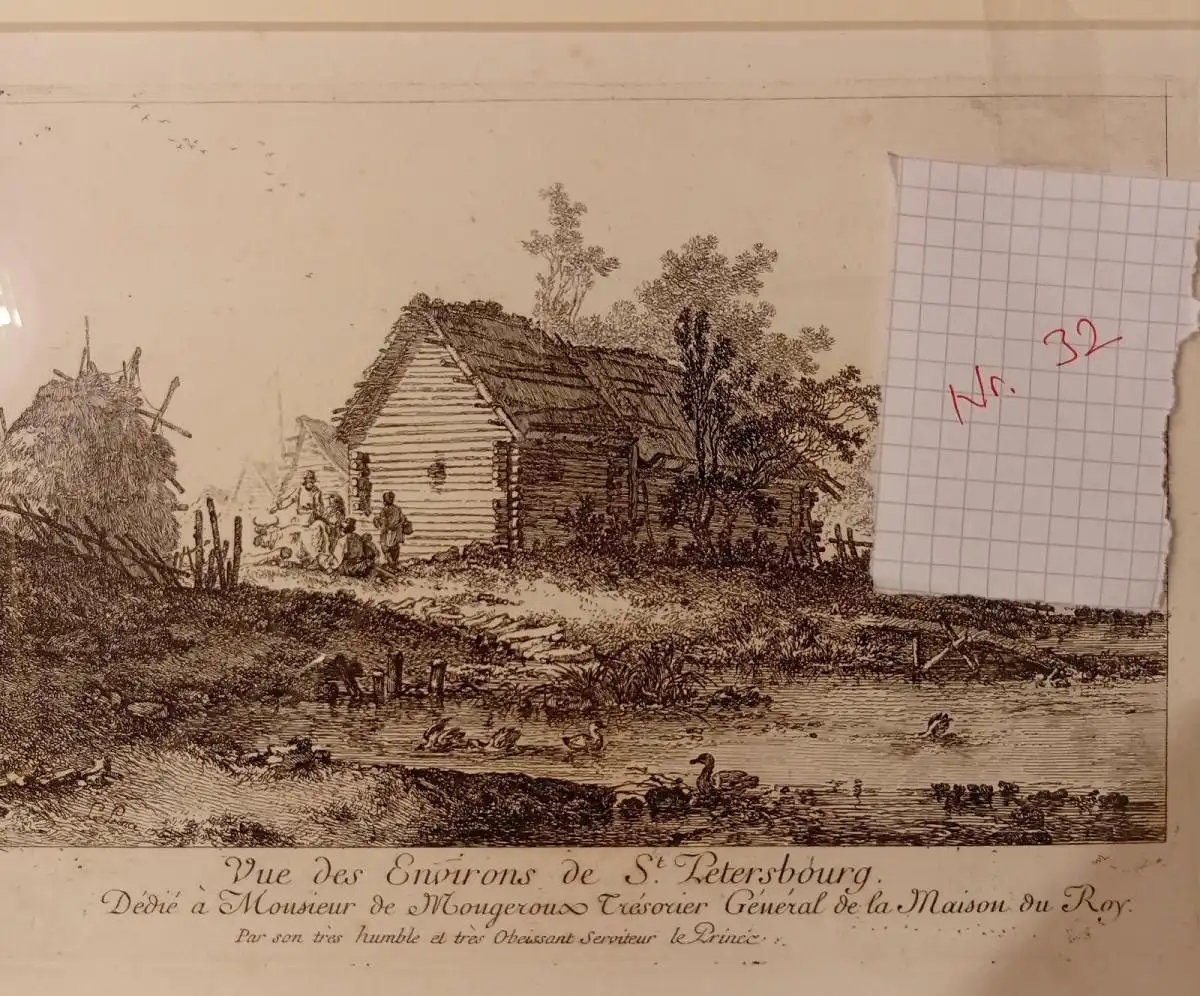 Nr. 32
Le Prince
Vue des Environs de St. Petersbourg.
Dédié à Monsieur de Mougeroux Trésorier Général de la Maison du Roy.
Par son très humble et très Obeissant Serviteur le Prince.